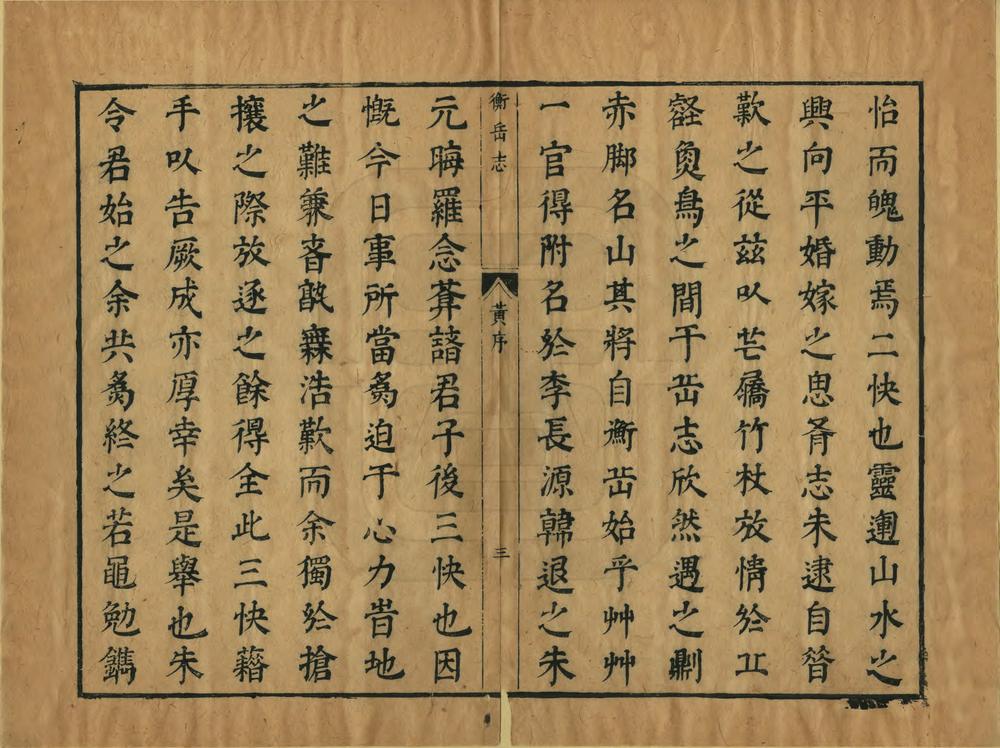 怡而魄動焉二快也靈運山水之
興向平婚嫁之思胥志未逮自晉
歎之從茲㕥芒屩竹杖放情於丘
壑魚鳥之間于嵒志欣然遇之劘
赤脚名山其將自衡嵒始乎艸艸
一官得附名於李長源韓退之朱
衡岳志
黃序
三
元晦羅念葊諸君子後三快也因
慨今日事所當爲迫于心力時地
之難兼者㪟無浩歎而余獨於搶
攘之際放逐之餘得全此三快藉
手㕥告厥成亦厚幸矣是舉也朱
令君始之余共爲終之若黽勉鐫